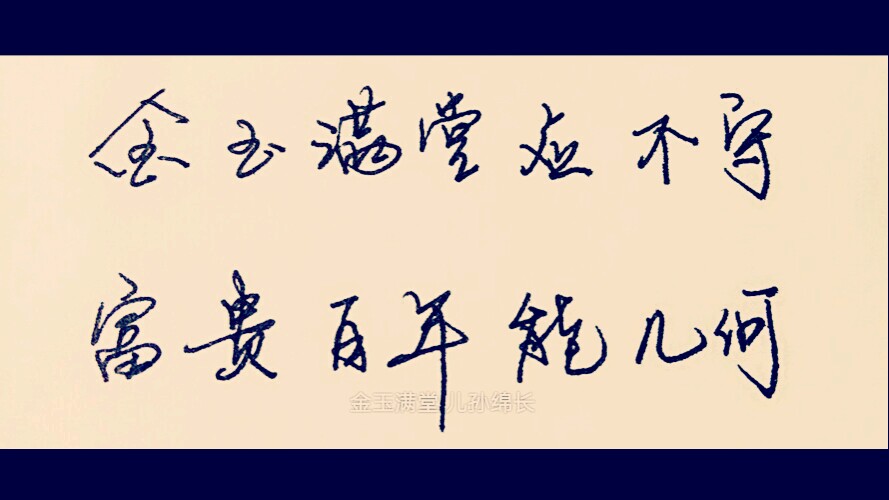 金玉满堂应不守
富贵百年能几何
金玉满堂 儿孙绵长